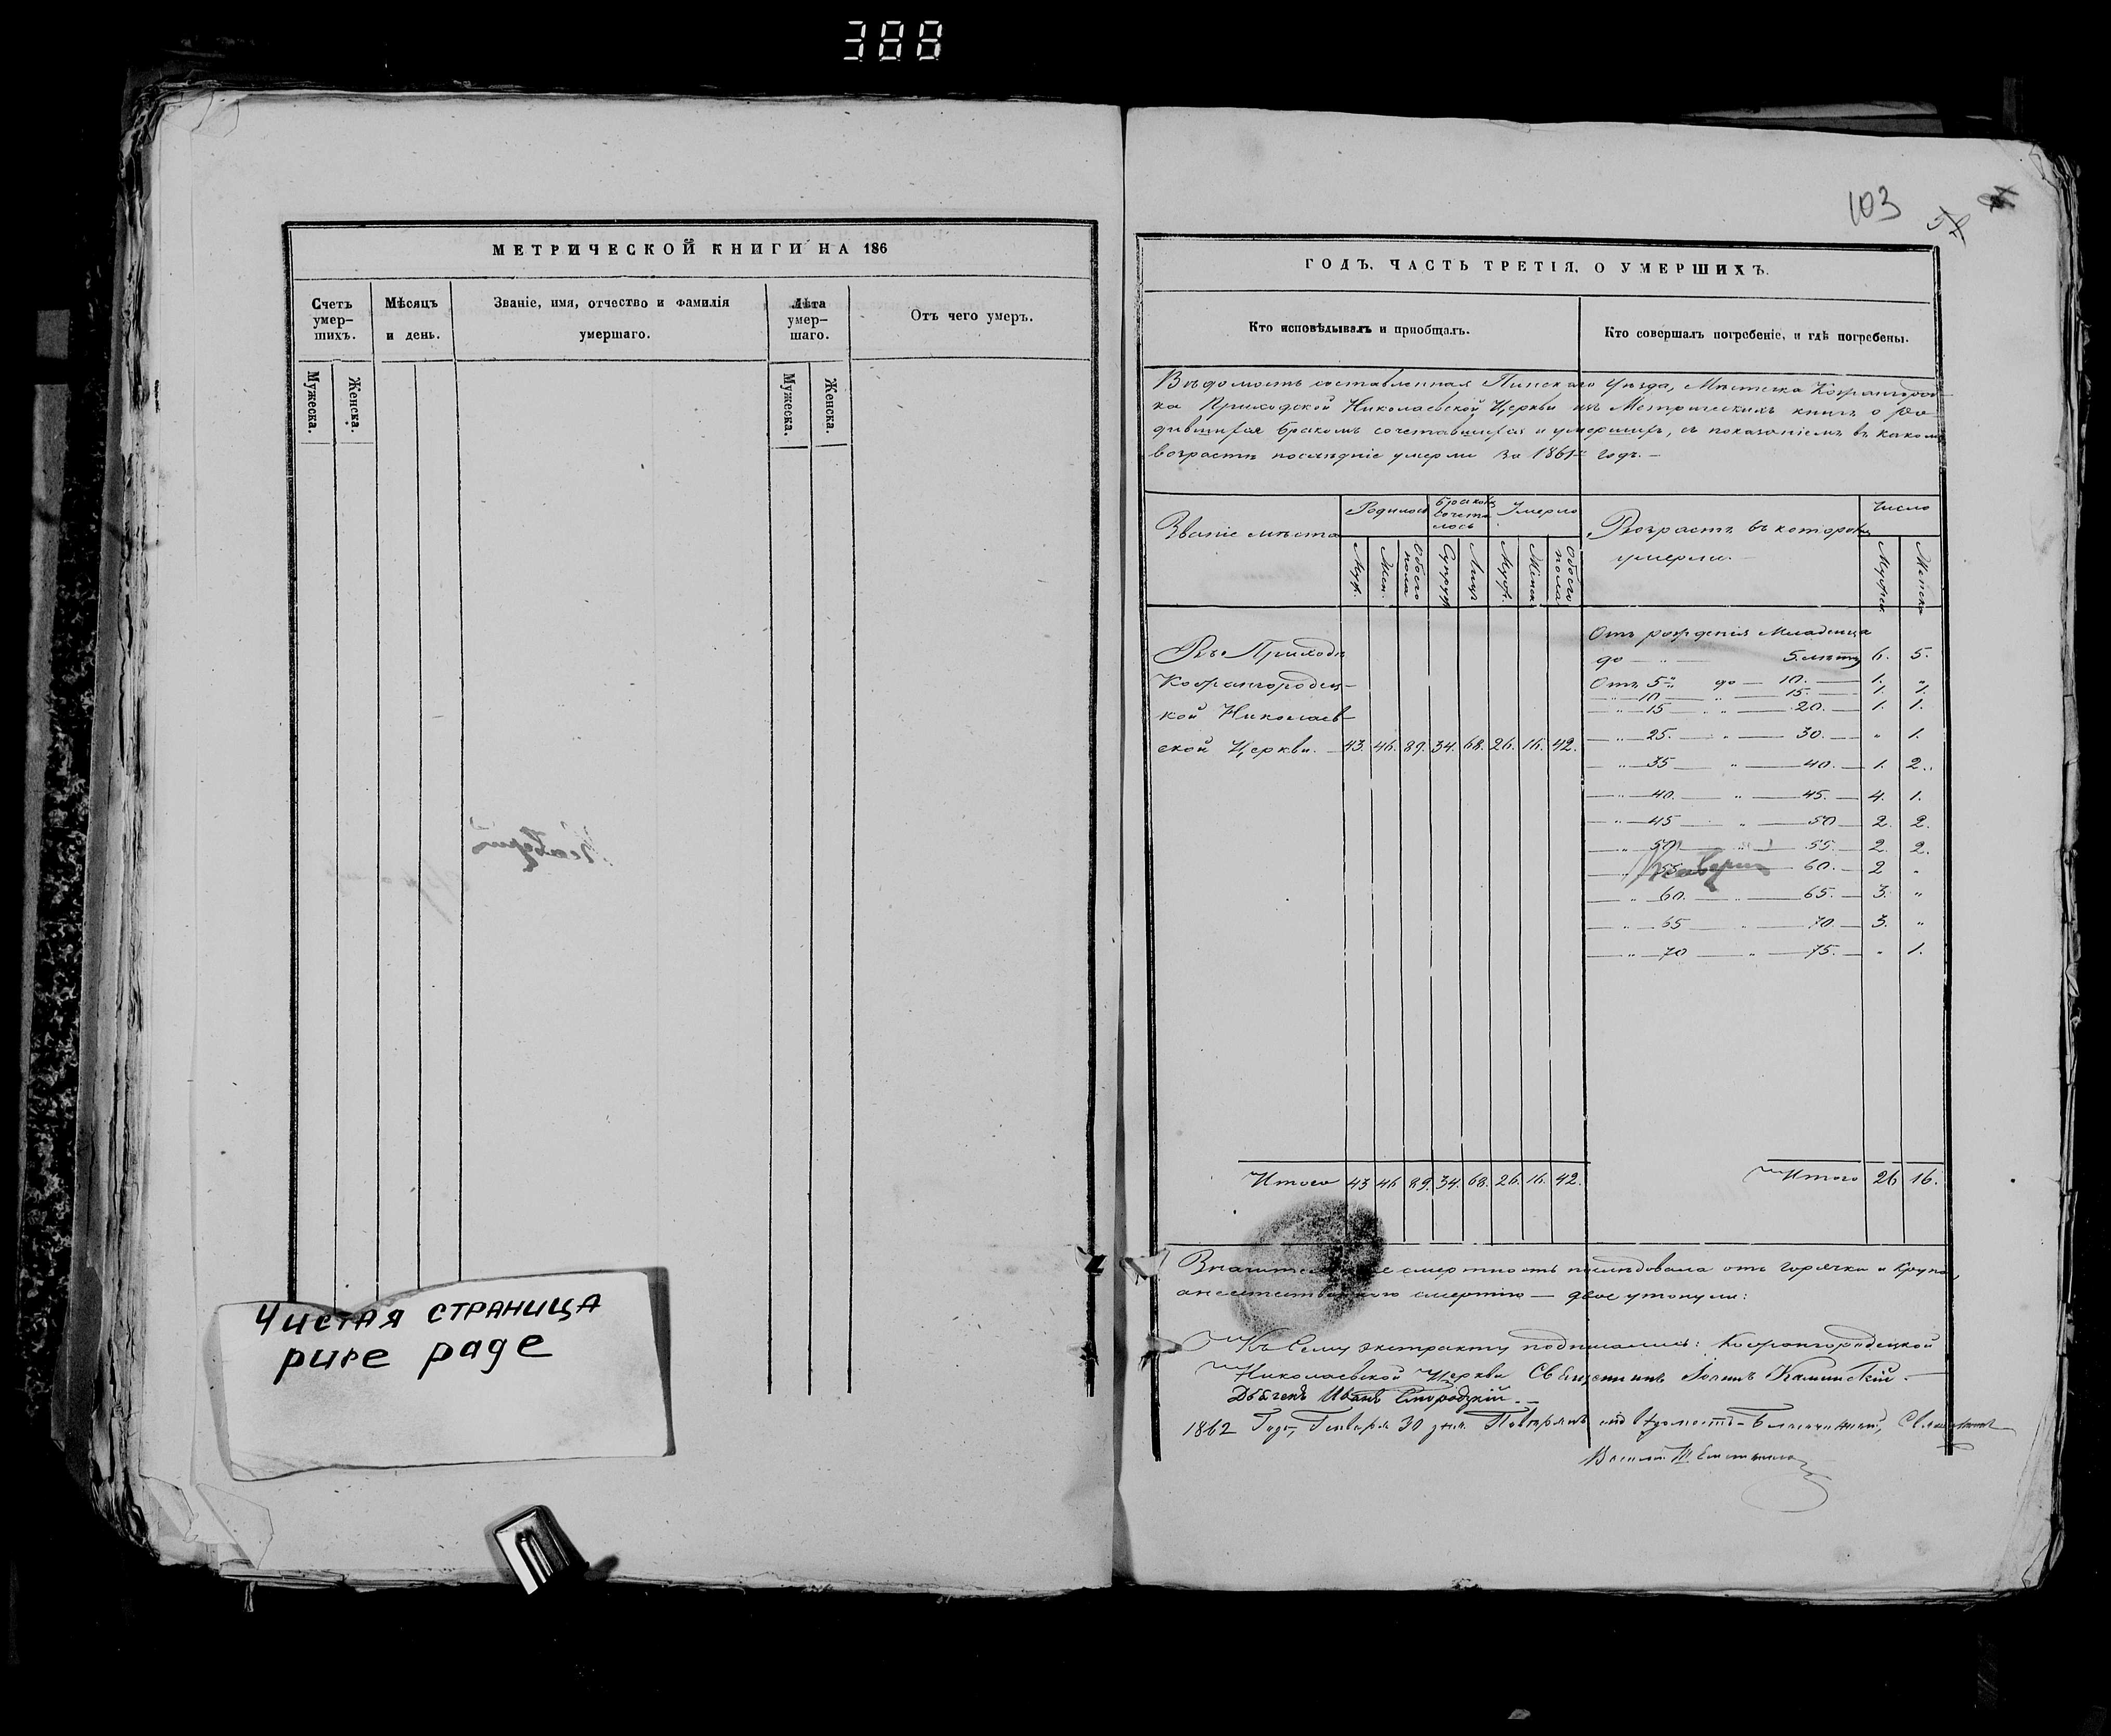 388
МЕТРИЧЕСКОЙ КНИГИ НА 186
Счетъ умер-шихъ.
Мѣсяцъ и день.
Званіе, имя, отчество и фамилія умершаго.
Лѣта умер-шаго.
Отъ чего умеръ.
Мужеска.
Женска.
Мужеска.
Женска.
Чистая страница
pure page
103
52
ГОДЪ. ЧАСТЬ ТРЕТІЯ. О УМЕРШИХЪ.
Кто исповѣдывалъ и пріобщалъ.
Кто совершалъ погребеніе, и гдѣ погребены.
Вѣдомость составленная Пинскаго Уѣзда, Мѣстечка Кожангород-
ка Приходской Николаевской Церкви изъ Метрическихъ книгъ о ро-
дившихся бракомъ сочетавшихся и умершихъ, съ показаніемъ въ какомъ
возрастѣ послѣдніе умерли за 1861й годъ. —
Званіе мѣста
Родилось
Бракомъ сочета лось
Умерло
Возрастъ въ которомъ
умерли. —
Число
Муж.
Жен.
Обоего пола
Супруж
Лицъ
Муж.
Женск
Обоего пола
Мужеск.
Женска
Отъ рожденія Младенца
Въ Приходѣ
до — " — 5. лѣтъ 6. 5.
Кожангородец-
Отъ 5 " до — 10. — 1. "
— " — 10 — " — 15. — 1. 1.
кой Николаев-
— " — 15 — " — 20. — 1. 1.
ской Церкви. — 43. 46. 89. 34. 68. 26. 16. 42.
— " — 25. — " — 30. — " 1.
— " — 35 — " — 40. — 1. 2.
— " — 40. — " — 45. — 4. 1.
— " — 45 — " — 50 — 2. 2.
— " — 50 — " — 55. — 2. 2.
— " — 55 — 60. — 2 "
— " — 60. — " — 65. — 3. "
— " — 65 — " — 70. — 3. "
— " — 70 — " — 75. — " 1.
Итого 43 46 89. 34. 68. 26. 16. 42.
Итого 26 16.
смертность послѣдовала отъ горячки и крупа,
смертію — двое утонули:
Къ Сему экстракту подписались: Кожангородецкой
Николаевской Церкви Священникъ Каминскій. —
Дьячекъ Иванъ Смородскій. —
1862 Года, Генваря 30 дня.